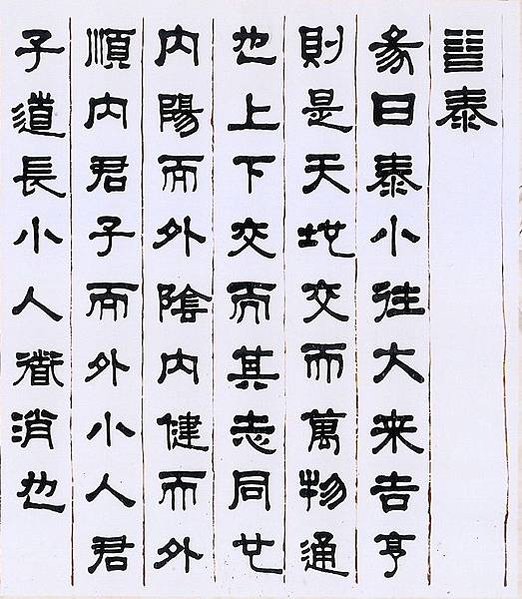 ䷊泰
彖曰泰小往大来吉亨
則是天地交而萬物通
也上下交而其志同也
内陽而外陰内健而外
順内君子而外小人君
子道長小人道消也